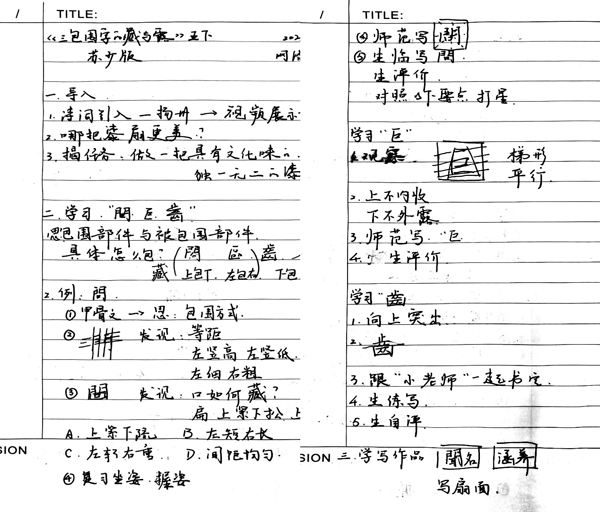 / TITLE:
《三包围字的藏与露》五下 202
苏少版
一.导入
1.诗词引入 — 扬州 → 视频展示
2.哪把漆扇更美?
3.揭任务.做一把具有文化味的
独一无二的漆
二.学习."問.巨.齒"
思包围部件与被包围部件.
具体怎么包?(問 區 齒
藏 上包下.左包右.下包
2.例:問
①甲骨文 → 思:包围方式.
② 发现:等距
左竖高 左竖低.
左细右粗
③ 問 发现:口如何藏?
扁 上紧下松 上
A.上紧下疏 B.左短右长
C.左轻右重 D.间距均匀.
④复习坐姿.握姿
SION
/ TITLE:
④师范写 問
⑤生临写問.
生评价.
对照4个要点打星.
学习"巨"
1.观察. 梯形
平行.
2.上不内收
下不外露.
3.师范写."巨
4.生评价
学习"齒
1.向上突出.
2.齒
3.跟"小老师"一起书空.
4.生练写.
5.生自评.
SION 三.学写作品 聞名 涵养
写扇面.